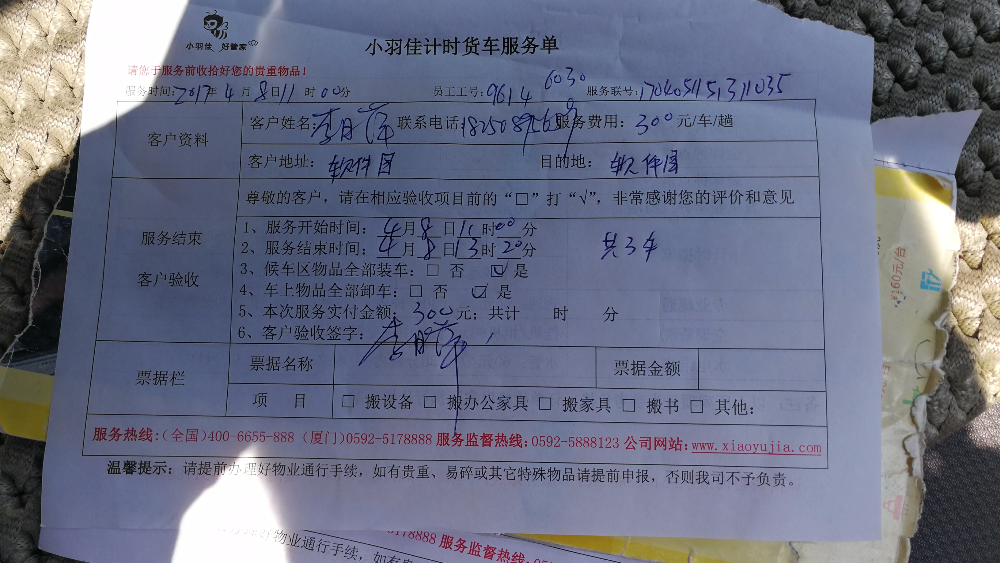 小羽佳 好管家
小羽佳计时货车服务单
请您于服务前收拾好您的贵重物品!
服务时间:2017年4月8日11时00分 员工工号:9614 6030 服务联号:
客户资料
客户姓名:李月萍 联系电话: 服务费用:300元/车/趟
客户地址:软件园 目的地:软件园
服务结束
客户验收
尊敬的客户，请在相应验收项目前的“□”打“√”，非常感谢您的评价和意见
1、服务开始时间:4月8日11时00分
2、服务结束时间:4月8日13时20分 共3车
3、候车区物品全部装车:□ 否 ☑ 是
4、车上物品全部卸车:□ 否 ☑ 是
5、本次服务实付金额:300元;共计 时 分
6、客户验收签字:李月萍
票据栏
票据名称 票据金额
项 目 □ 搬设备 □ 搬办公家具 □ 搬家具 □ 搬书 □ 其他:
服务热线:(全国)400-6655-888 (厦门)0592-5178888 服务监督热线:0592-5888123 公司网站:www.xiaoyujia.com
温馨提示:请提前办理好物业通行手续，如有贵重、易碎或其它特殊物品请提前申报，否则我司不予负责。
¥160元/台
5178888 服务监督热线:05
物业通行手续，如有